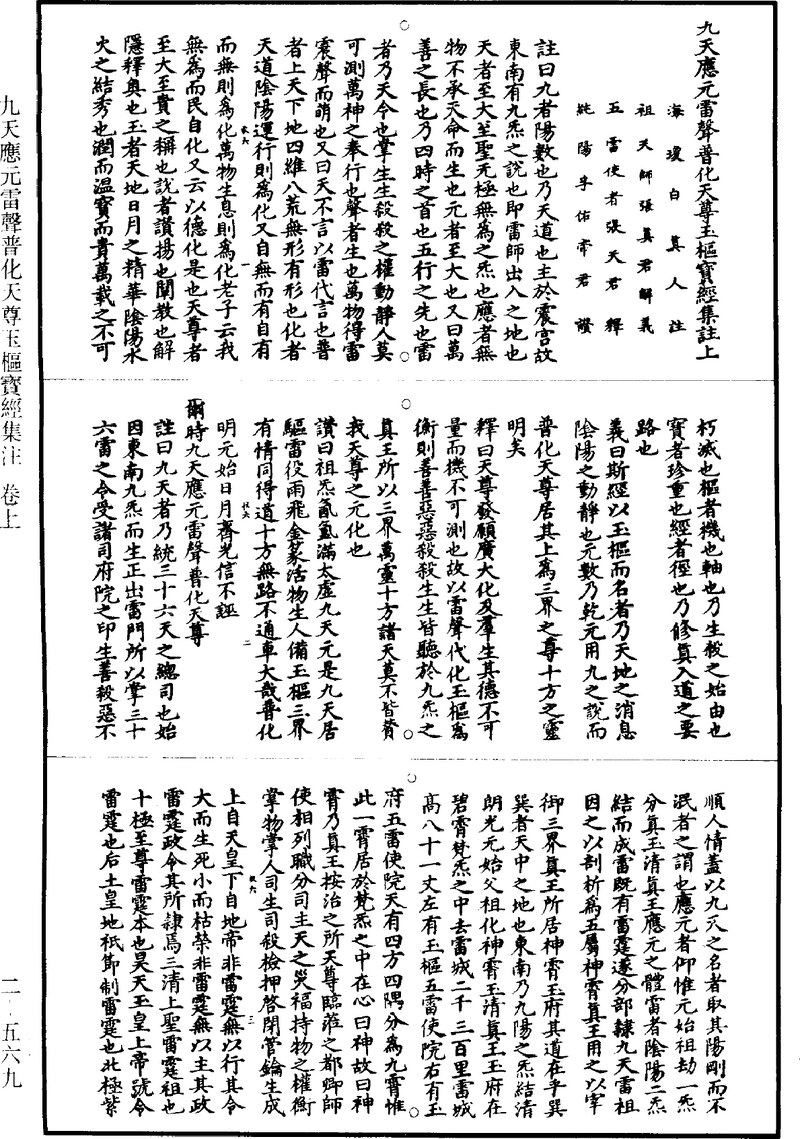 九天應元雷聲普化天尊玉樞寶經集註上
海瓊白真人注
祖天師張真君解義
五雷使者張天君釋
純陽孚佑帝君讚
註曰九者陽數也乃天道也主於震宮故
東南有九炁之說也即雷師出入之地也
天者至大至聖无極無為之炁也應者無
物不承天命而生也元者至大也又曰萬
善之長也乃四時之首也五行之先也雷
者乃天令也掌生生殺殺之權動靜人莫
可測萬神之奉行也聲者生也萬物得雷
震聲而萌也又曰天不言以雷代言也普
者上天下地四維八荒無形有形也化者
天道陰陽運行則為化又自無而有自有
而無則為化萬物生息則為化老子云我
無為而民自化又云以德化是也天尊者
至大至貴之稱也說者讚揚也闡教也解
隱釋奧也玉者天地日月之精華陰陽水
火之結秀也潤而溫寶而貴萬載之不可
朽滅也樞者機也軸也乃生殺之始由也
寶者珍重也經者徑也乃修真入道之要
路也
義曰斯經以玉樞而名者乃天地之消息
陰陽之動靜也元數乃乾元用九之說而
普化天尊居其上為三界之尊十方之靈
明矣
釋曰天尊發願廣大化及羣生其德不可
量而機不可測也故以雷聲代化玉樞為
衡則善善惡惡殺殺生生皆聽於九炁之
真王所以三界萬靈十方諸天莫不皆賛
我天尊之元化也
讚曰祖炁氤氳滿太虛九天元是九天居
驅雷役雨飛金篆活物生人備玉樞三界
有情同得道十方無路不通車大哉普化
明元始日月齊光信不誣
爾時九天應元雷聲普化天尊
註曰九天者乃統三十六天之總司也始
因東南九炁而生正出雷門所以掌三十
六雷之令受諸司府院之印生善殺惡不
順人情蓋以九天之名者取其陽剛而不
泯者之謂也應元者仰惟元始祖劫一炁
分真玉清真王應元之體雷者陰陽二炁
結而成雷既有雷霆遂分部隸九天雷祖
因之以剖析為五屬神霄真王用之以宰
御三界真王所居神霄玉府其道在乎巽
巽者天中之地也東南乃九陽之炁結清
朗光元始父祖化神霄玉清真王玉府在
碧霄梵炁之中去雷城二千三百里雷城
高八十一丈左有玉樞五雷使院右有玉
府五雷使院天有四方四隅分為九霄惟
此一霄居於梵炁之中在心曰神故曰神
霄乃真王按治之所天尊臨蒞之都卿師
使相列職分司主天之災福持物之權衡
掌物掌人司生司殺檢押啓閉管鑰生成
上自天皇下自地帝非雷霆無以行其令
大而生死小而枯榮非雷霆無以主其政
雷霆政令其所隸焉三清上聖雷霆祖也
十極至尊雷霆本也昊天玉皇上帝號令
雷霆也后土皇地祇節制雷霆也北極紫
九天應元雷聲普化天尊玉樞寶經集注 卷上
二－五六九